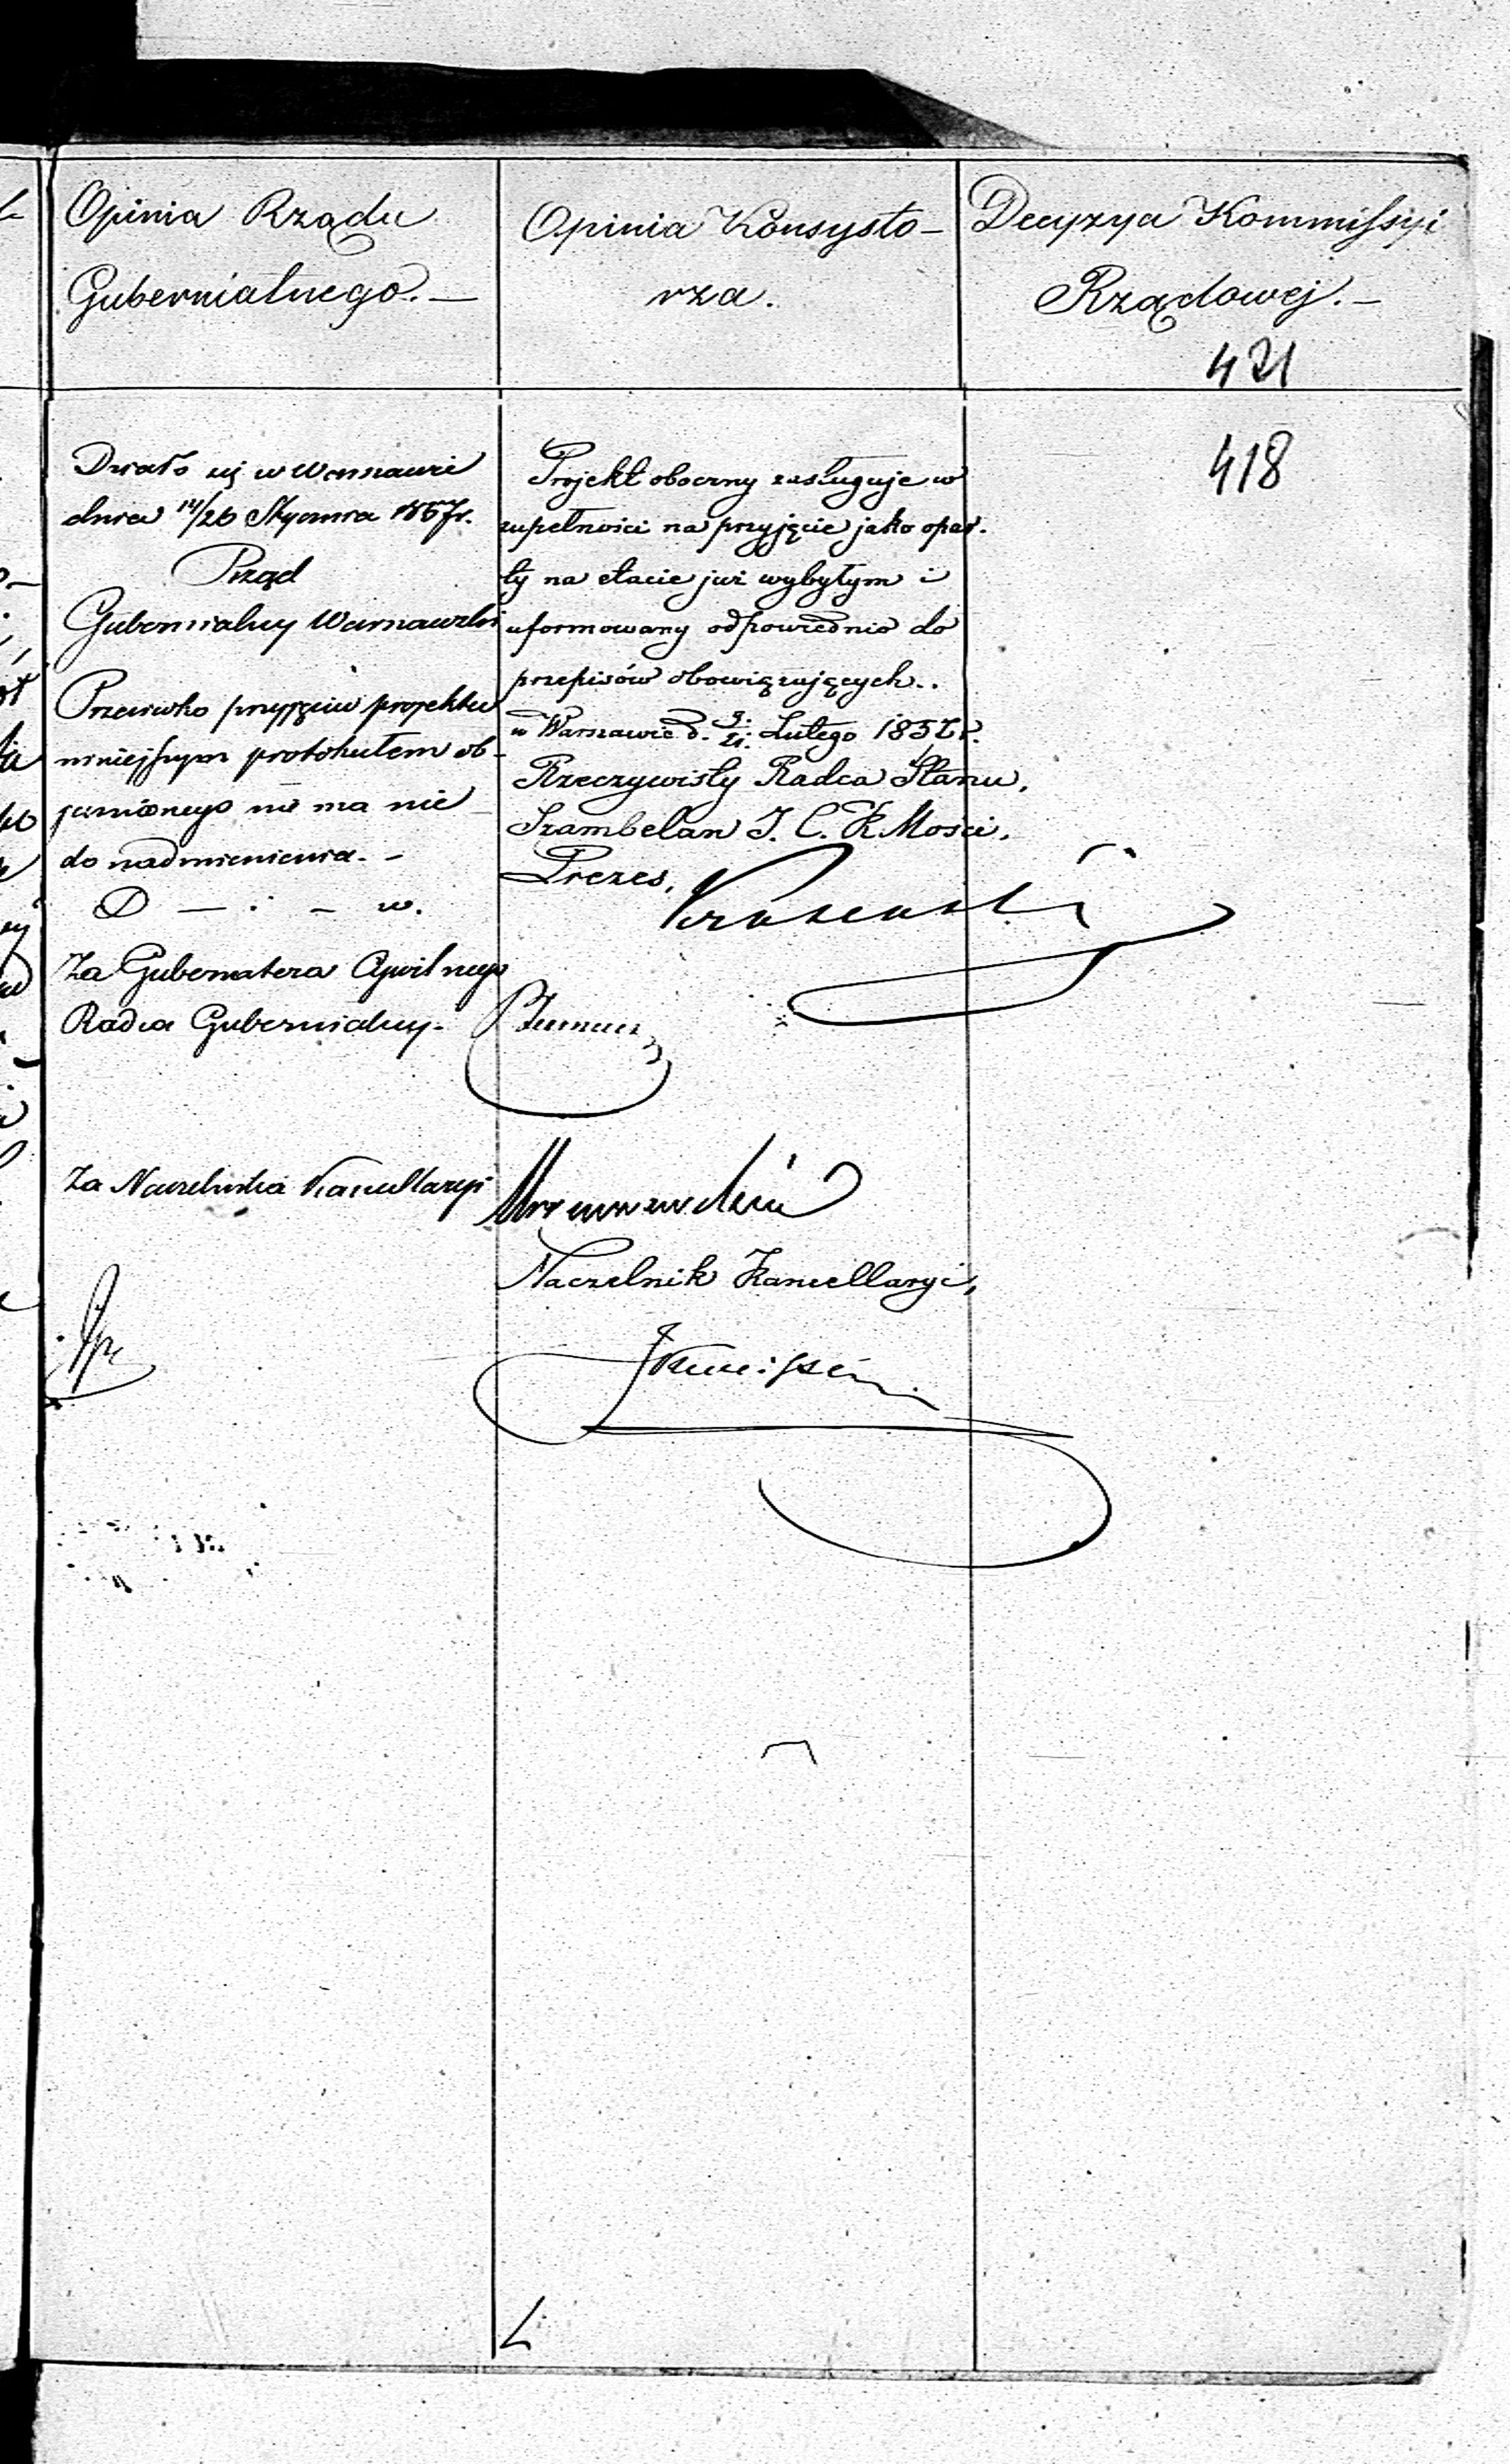 Opinia Rządu
Gubernialnego. —
Opinia Konsysto-
rza.
Decyzya Kommissyi
Rządowej. —
421
418
Działo się w Warszawie
dnia 14/26 Stycznia 1857 r.
Rząd
Gubernialny Warszawski
Przeciwko przyjęciu projektu
niniejszym protokułem ob-
jawionego nie ma nic
do nadmienienia. —
D — : — w.
Za Gubernatora Cywilnego
Radca Gubernialny.
Za Naczelnika Kancellaryi
Projekt oboczny zasługuje w
zupełności na przyjęcie jako opar-
ty na etacie już wybytym i
uformowany odpowiednio do
przepisów obowiązujących..
w Warszawie d. 9./21. Lutego 1857 r.
Rzeczywisty Radca Stanu,
Szambelan J. C. K. Mości,
Prezes,
Naczelnik Kancellaryi,